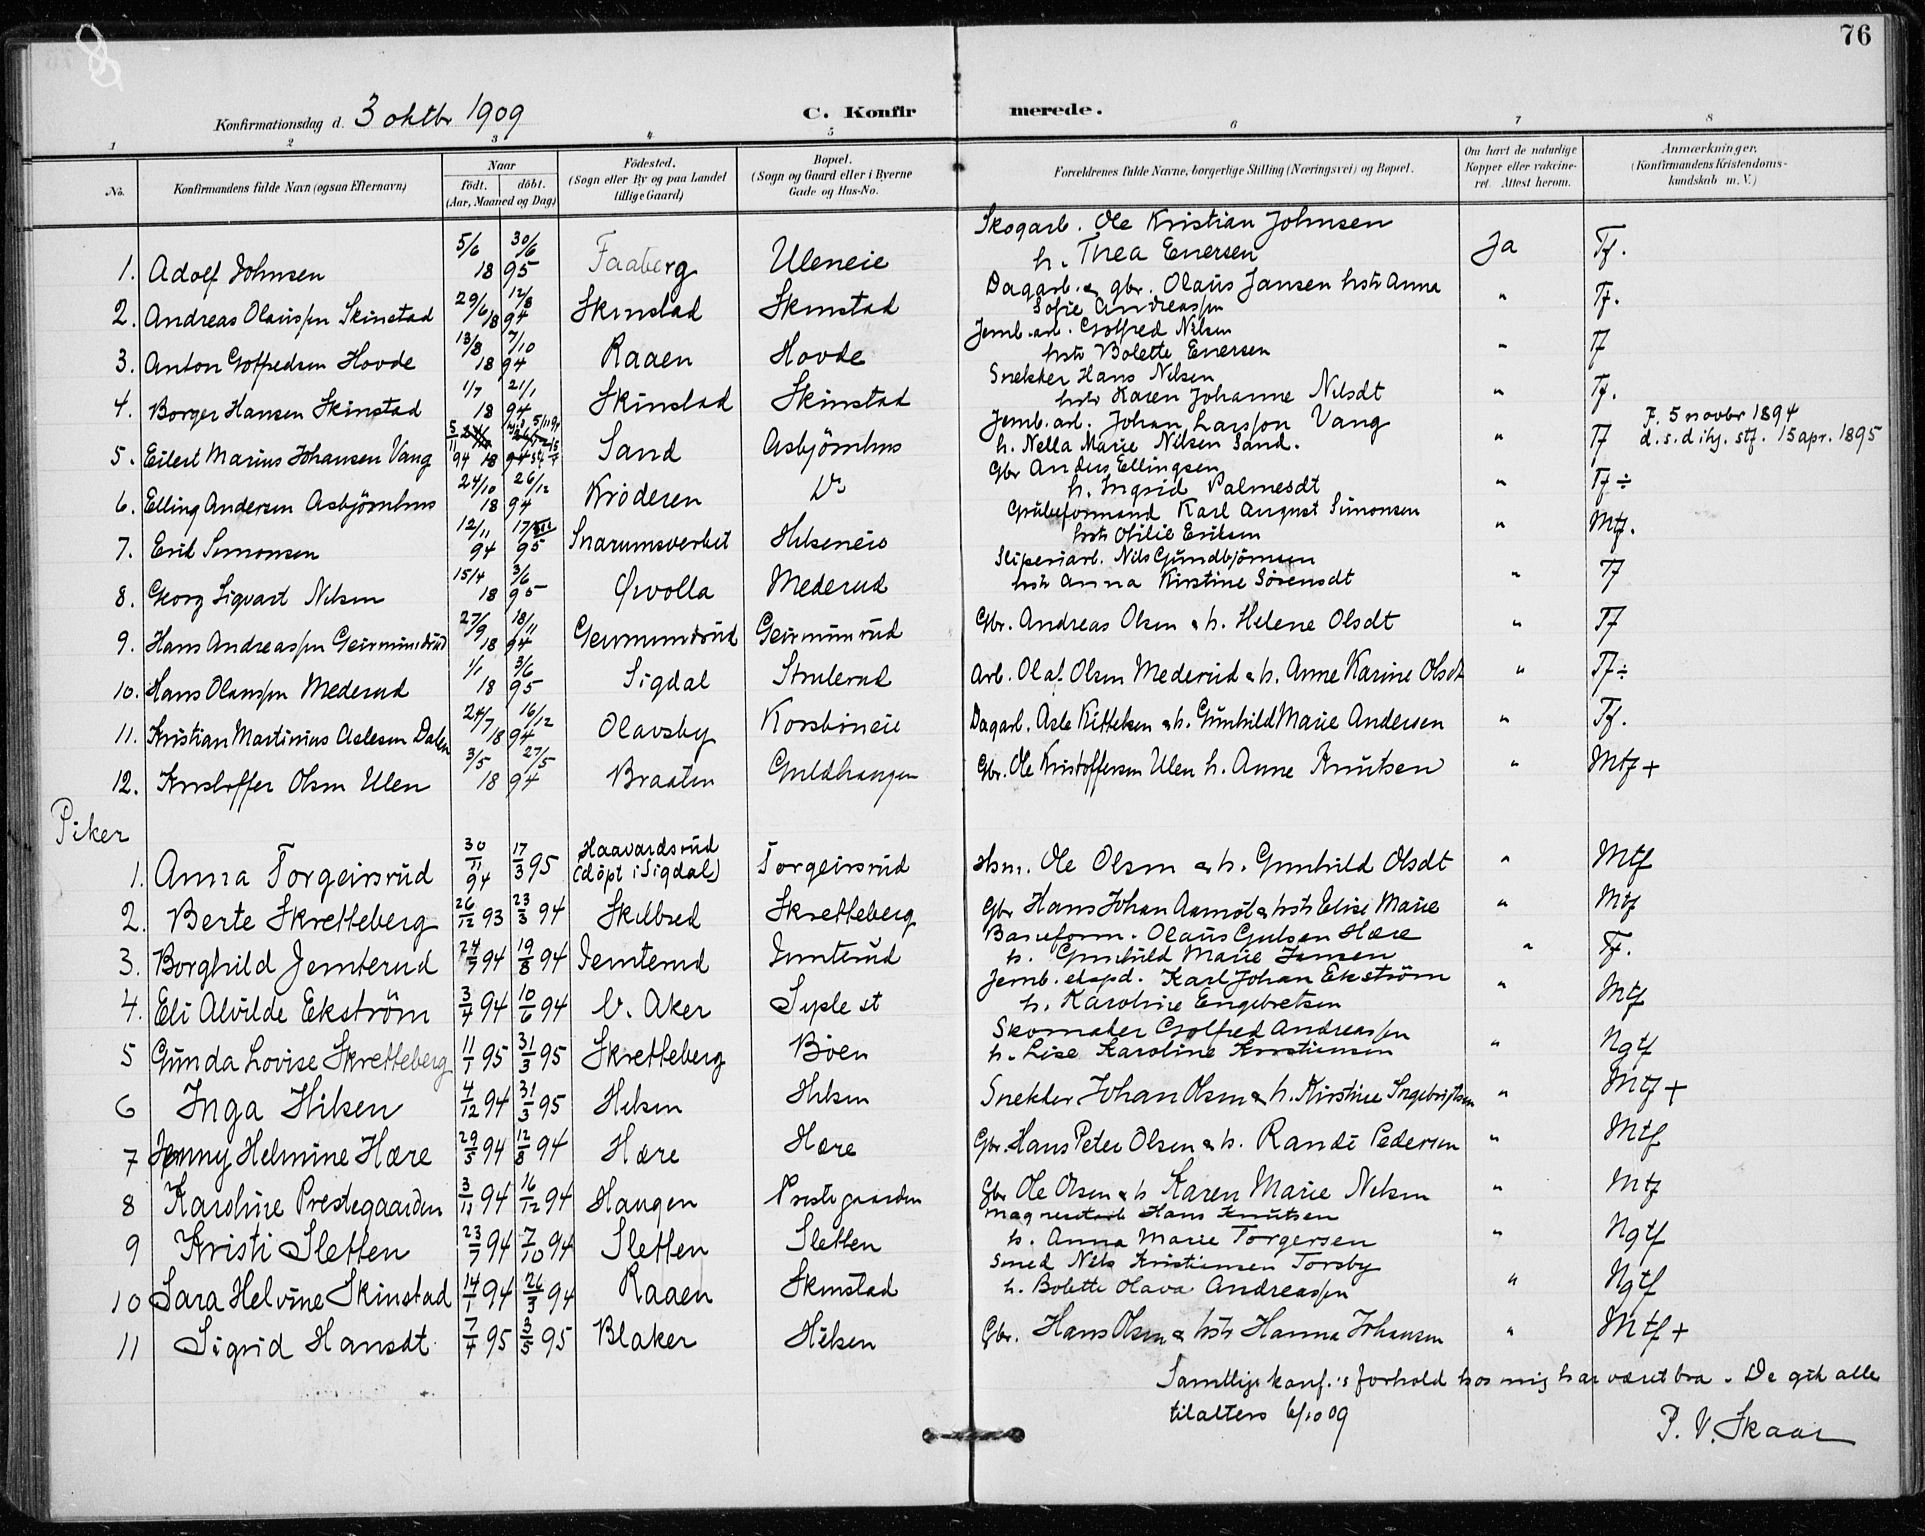 8
76
Konfirmationsdag d. 3 oktbr 1909
C. Konfirmerede.
1 2 3 4 5 6 7 8
No. Konfirmandens fulde Navn (ogsaa Efternavn) Naar födt. döbt. (Aar, Maaned og Dag) Födested. (Sogn eller By og paa Landet tillige Gaard) Bopæl. (Sogn og Gaard eller i Byerne Gade og Hus-No. Forældrenes fulde Navne, borgerlige Stilling (Næringsvei) og Bopæl. Om havt de naturlige Kopper eller vakcineret. Attest herom. Anmærkninger. (Konfirmandens Kristendomskundskab m. V.)
1. Adolf Johnsen 5/6 30/6 1895 Faaberg Uleneie Skogarb. Ole Kristian Johnsen h. Thea Enersen Ja Tf.
2. Andreas Olaussen Skinstad 29/6 12/8 1894 Skinstad Skinstad Dagarb. & gbr. Olaus Jansen hstr Anna Sofie Andreassen " Tf.
3. Anton Gotfredsen Hovde 13/8 7/10 1894 Raaen Hovde Jernb. arb. Gotfred Nilsen hstr Bolette Enersen " Tf
4. Borger Hansen Skinstad 1/7 21/1 1894 Skinstad Skinstad Snekker Hans Nilsen hstr Karen Johanne Nilsdt " Tf.
5. Eilert Marius Johansen Vang 5/11 94 Sand Asbjörnhus Jernb. arb. Johan Larsson Vang h. Nella Marie Nilsen Sand. " Tf F. 5 novbr 1894 d. s. d ihj. stf. 15 apr. 1895
6. Elling Andersen Asbjörnhus 24/10 26/12 1894 Kröderen Do Gbr Anders Ellingsen h. Ingrid Palmesdt " Tf ÷
7. Erik Simonsen 12/11 94 17/ 95 Snarumsverket Hilseneie Grubeformand Karl August Simonsen hstr Otilie Eriksen " Mtf.
8. Georg Sigvart Nilsen 15/4 3/6 1895 Qvolla Mederud Sliperiarb. Nils Gundbjörnsen hstr Anna Kirstine Sörensdt " Tf
9. Hans Andreassen Geirmundrud 27/9 18/11 1894 Geirmundrud Geirmunrud Gbr. Andreas Olsen & h. Helene Olsdt " Tf
10. Hans Olaussen Mederud 1/1 3/6 1895 Sigdal Strulerud Arb. Olaf Olsen Mederud & h. Anne Karine Olsdt " Tf ÷
11. Kristian Martinius Aslesen Dalen 24/7 16/12 1894 Olavsby Korsböneie Dagarb. Asle Kittelsen & h. Gunhild Marie Andersen " Tf.
12. Kristoffer Olsen Ulen 3/5 27/5 1894 Braaten Guldhaugen Gbr. Ole Kristoffersen Ulen h. Anne Knutsen " Mtf +
Piker
1. Anna Torgeirsrud 30/11 94 17/3 95 Haavardsrud (döpt i Sigdal) Torgeirsrud Hsm. Ole Olsen & h. Gunhild Olsdt " Mtf
2. Berte Skretteberg 26/12 93 23/3 94 Skilbred Skretteberg Gbr Hans Johan Aamot & hstr Elise Marie " Mtf
3. Borghild Jemterud 24/7 94 19/8 94 Jemterud Jemterud Baneform. Olaus Gulsen Hære h. Gunhild Marie Jensen " Tf.
4. Eli Alvilde Ekström 3/4 94 10/6 94 V. Aker Sysle st Jernb. eksped. Karl Johan Ekström h. Karoline Engebretsen " Mtf
5 Gunda Lovise Skretteberg 11/1 95 31/3 95 Skretteberg Böen Skomaker Gotfred Andreassen h. Lise Karoline Kristiansen " Ngtf
6 Inga Hilsen 4/12 94 31/3 95 Hilsen Hilsen Snekker Johan Olsen & h. Kirstine Ingebrigtsen " Mtf +
7 Jenny Helmine Hære 29/5 94 12/8 94 Hære Hære Gbr. Hans Peter Olsen & h. Randi Pedersen " Mtf
8 Karoline Prestegaarden 3/11 94 16/12 94 Haugen Prestegaarden Gbr Ole Olsen & h Karen Marie Nilsen " Mtf
9 Kristi Sletten 23/7 94 7/10 94 Sletten Sletten Magnesitarb Hans Knutsen h. Anna Marie Torgersen " Ngtf
10 Sara Helvine Skinstad 14/1 94 26/3 94 Raaen Skinstad Smed Nils Kristiansen Torsby h. Bolette Olava Andreassen " Ngtf
11 Sigrid Hansdt 7/4 95 3/5 95 Blaker Hilsen Gbr. Hans Olsen & hstr Hanna Johansen " Mtf +
Samtlige konf.'s forhold hos mig har været bra. De gik alle
til alters 6/10 09
P. V. Skaar